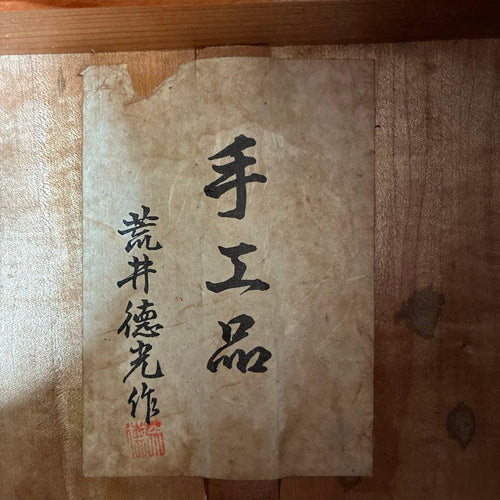 手工品
荒井德光作